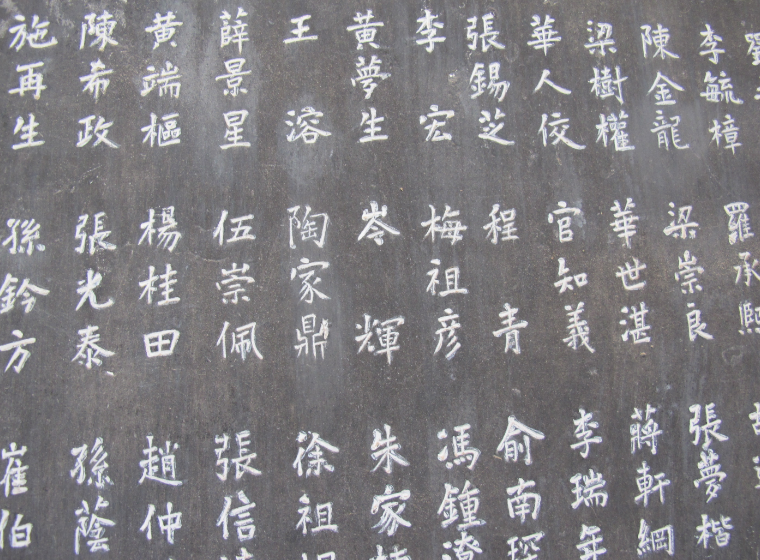 劉
李毓樟
陳金龍
梁樹權
華人佼
張錫芝
李宏
黃夢生
王溶
薛景星
黃端樞
陳希政
施再生
羅承熙
梁崇良
華世湛
官知義
程青
梅祖彦
岑輝
陶家鼎
伍崇佩
楊桂田
張光泰
孫鈐方
張夢楷
蔣軒綱
李瑞年
俞南琛
馮鍾
朱家
徐祖
張信
趙仲
孫蔭
崔伯